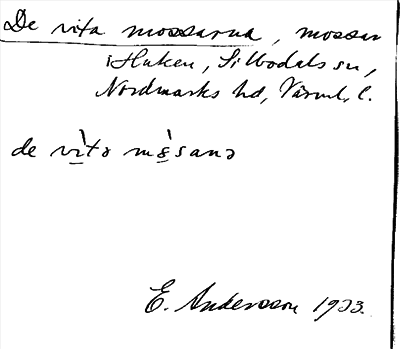 De vita mossarna, mossar
i Haken, Silbodals sn,
Nordmarks hd, Värml. l.
de vì̠tə mɞ̠̀sanə
E. Andersson 1933.